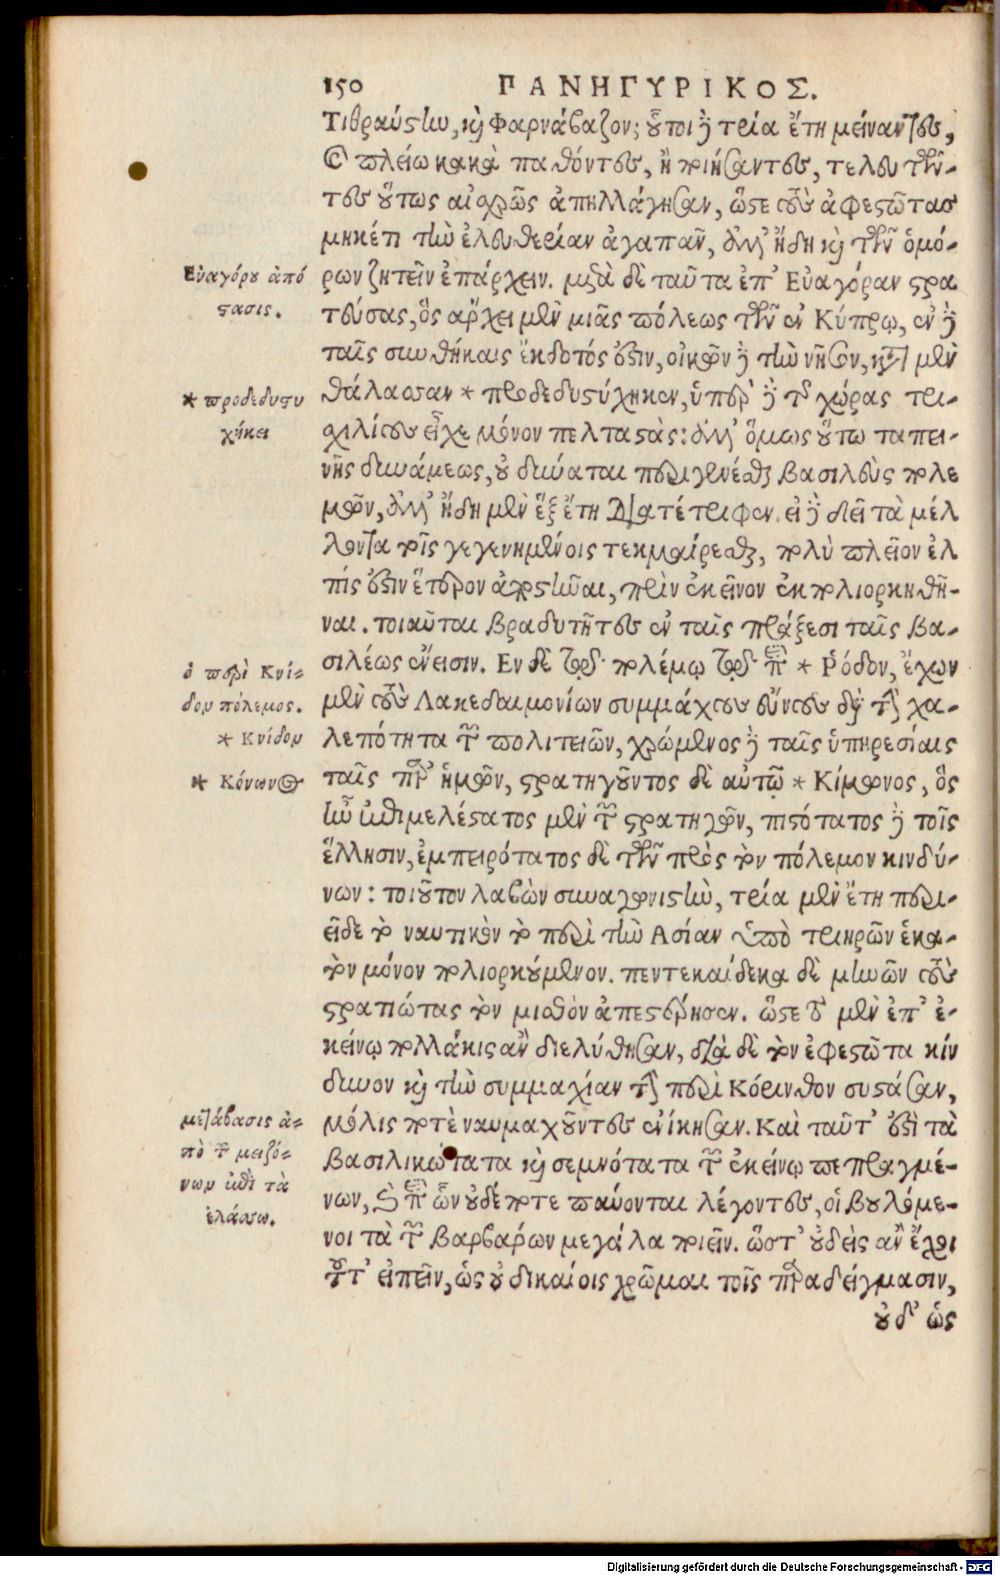 150 ΠΑΝΗΓΥΡΙΚΟΣ.
Τιθραύστην, καὶ Φαρνάβαζον; οὗτοι δὲ τρία ἔτη μείναντες,
καὶ πλείω κακὰ παθόντες, ἢ ποιήσαντες, τελευτῶν-
τες οὕτως αἰσχρῶς ἀπηλλάγησαν, ὥστε τοὺς ἀφεστῶτας
μηκέτι τὴν ἐλευθερίαν ἀγαπᾶν, ἀλλ' ἤδη καὶ τῶν ὁμό-
Εὐαγόρου ἀπό
στασις.
ρων ζητεῖν ἐπάρχειν. μετὰ δὲ ταῦτα ἐπ' Εὐαγόραν στρα
τεύσας, ὃς ἄρχει μὲν μιᾶς πόλεως τῶν ἐν Κύπρῳ, ἐν δὲ
ταῖς συνθήκαις ἔκδοτός ἐστιν, οἰκῶν δὲ τὴν νῆσον, κατὰ μὲν
* προδεδυστυ
χήκει
θάλασσαν * προδεδυστύχηκεν, ὑπὲρ δὲ τῆς χώρας τρι-
σχιλίους εἶχε μόνον πελταστάς: ἀλλ' ὅμως οὕτω ταπει-
νῆς δυνάμεως, οὐ δύναται περιγενέσθαι βασιλεὺς πολε
μῶν, ἀλλ' ἤδη μὲν ἓξ ἔτη διατέτριφεν. εἰ δὲ δεῖ τὰ μέλ
λοντα τοῖς γεγενημένοις τεκμαίρεσθαι, πολὺ πλεῖον ἐλ
πίς ἐστιν ἕτερον ἀποστῆναι, πρὶν ἐκεῖνον ἐκπολιορκηθῆ-
ναι. τοιαῦται βραδυτῆτες ἐν ταῖς πράξεσι ταῖς βα-
ὁ περὶ Κνί-
δον πόλεμος.
* Κνίδον
* Κόνωνος
σιλέως ἔνεισιν. Εν δὲ τῷ πολέμῳ τῷ περὶ * Ῥόδον, ἔχων
μὲν τοὺς Λακεδαιμονίων συμμάχους εὔνους διὰ τὴν χα-
λεπότητα τῶν πολιτειῶν, χρώμενος δὲ ταῖς ὑπηρεσίαις
ταῖς παρ' ἡμῶν, στρατηγοῦντος δὲ αὐτῷ * Κίμωνος, ὃς
ἦν ἐπιμελέστατος μὲν τῶν στρατηγῶν, πιστότατος δὲ τοῖς
ἕλλησιν, ἐμπειρότατος δὲ τῶν πρὸς τὸν πόλεμον κινδύ-
νων: τοιοῦτον λαβὼν συναγωνιστὴν, τρία μὲν ἔτη περι-
εῖδε τὸ ναυτικὸν τὸ περὶ τὴν Ασίαν ὑπὸ τριηρῶν ἑκα-
τὸν μόνον πολιορκούμενον. πεντεκαίδεκα δὲ μηνῶν τοὺς
στρατιώτας τὸν μισθὸν ἀπεστέρησεν. ὥστε τὸ μὲν ἐπ' ἐ-
κείνῳ πολλάκις ἂν διελύθησαν, διὰ δὲ τὸν ἐφεστῶτα κίν
δυνον καὶ τὴν συμμαχίαν τὴν περὶ Κόρινθον συστᾶσαν,
μετάβασις ἀ-
πὸ τῶν μειζό-
νων ἐπὶ τὰ
ἐλάσσω.
μόλις ποτὲ ναυμαχοῦντες ἐνίκησαν. Καὶ ταῦτ' ἐστὶ τὰ
βασιλικώτατα καὶ σεμνότατα τῶν ἐκείνῳ πεπραγμέ-
νων, καὶ περὶ ὧν οὐδέποτε παύονται λέγοντες, οἱ βουλόμε-
νοι τὰ τῶν βαρβάρων μεγάλα ποιεῖν. ὥστ' οὐδεὶς ἂν ἔχοι
τοῦτ' εἰπεῖν, ὡς οὐ δικαίοις χρῶμαι τοῖς παραδείγμασιν,
οὐδ' ὡς
Digitalisierung gefördert durch die Deutsche Forschungsgemeinschaft - DFG